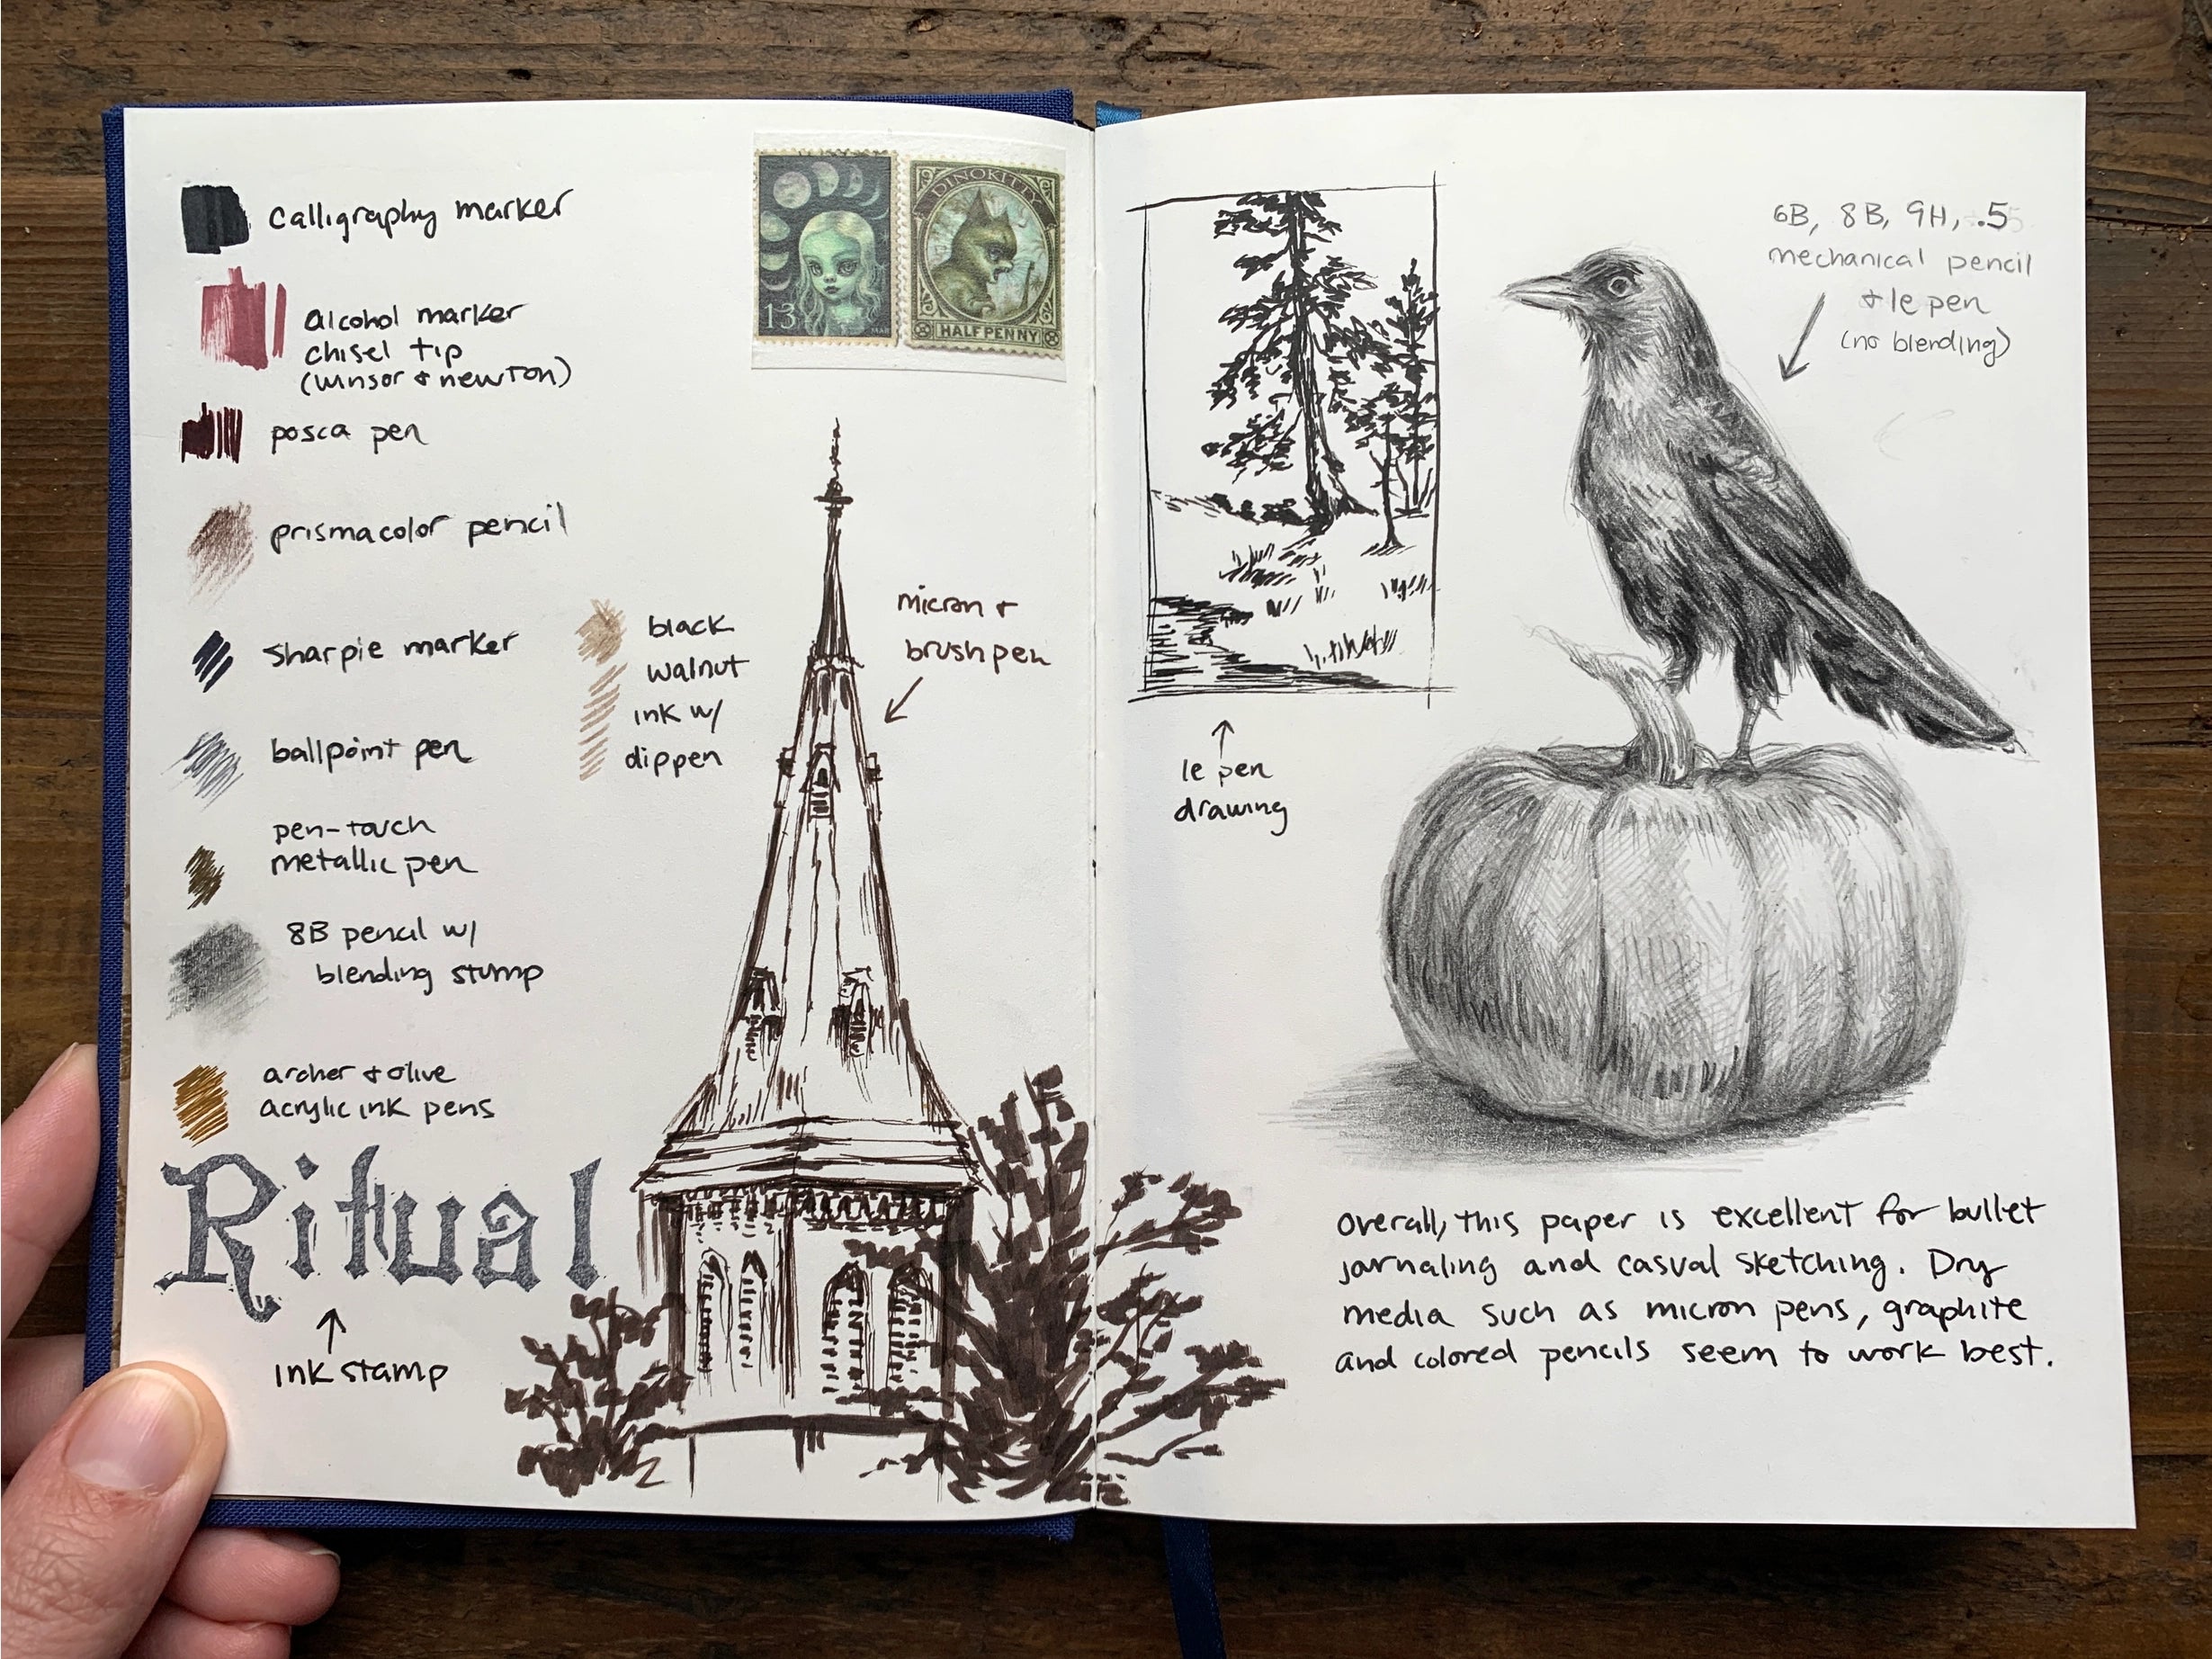 calligraphy marker
alcohol marker
chisel tip
(winsor & newton)
posca pen
prismacolor pencil
sharpie marker
ballpoint pen
pen-touch
metallic pen
8B pencil w/
blending stump
archer & olive
acrylic ink pens
Ritual
ink stamp
black
walnut
ink w/
dip pen
13
DINOKITTY
HALF PENNY
micron &
brush pen
le pen
drawing
6B, 8B, 9H, .5
mechanical pencil
& le pen
(no blending)
Overall, this paper is excellent for bullet
journaling and casual sketching. Dry
media such as micron pens, graphite
and colored pencils seem to work best.